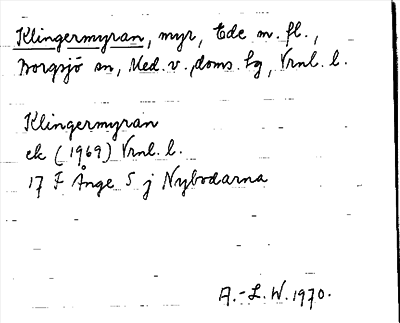 Klingermyran, myr, Ede m. fl.,
Borgsjö sn, Med. v. doms. hg, Vrnl. l.
Klingermyran
ek (1969) Vrnl. l.
17 F Ånge S j Nybodarna
A.-L. W. 1970.